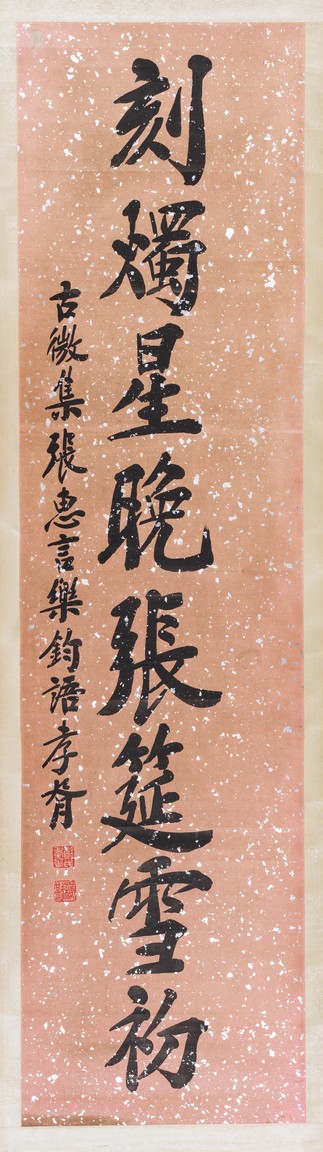 刻燭星晚張筵雪初
古微集張惠言樂鈞語孝胥